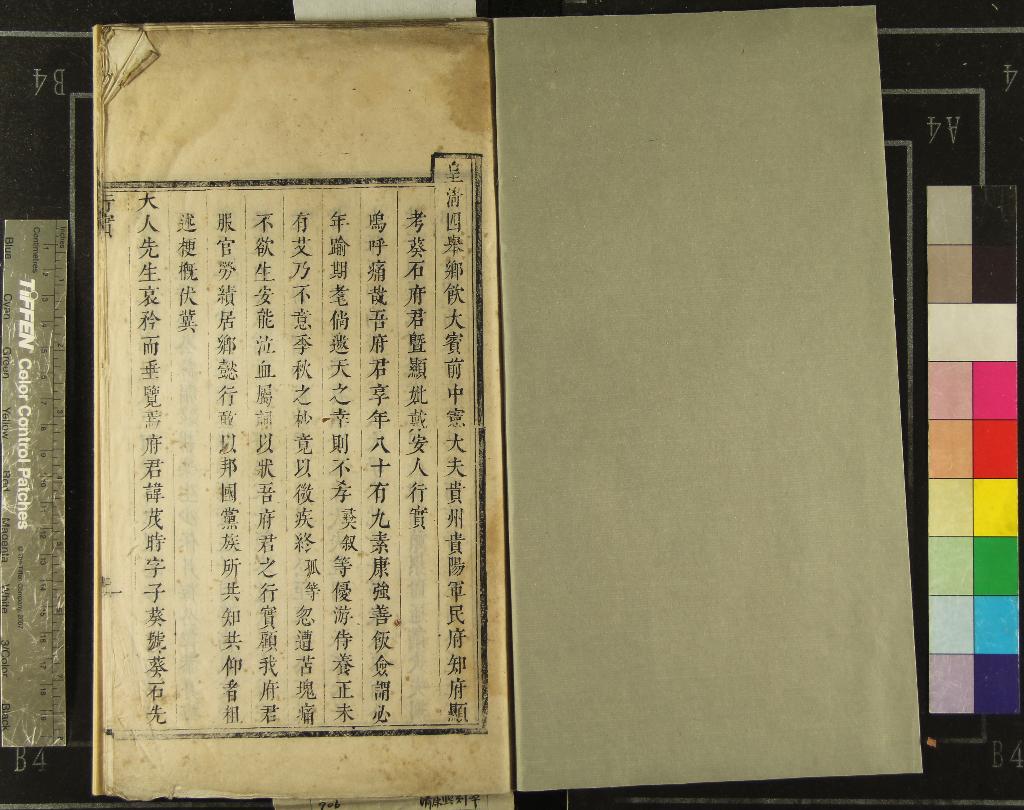 皇清四舉鄉飲大賓前中憲大夫貴州貴陽軍民府知府顯
考葵石府君暨顯妣戴安人行實
嗚呼痛哉吾府君享年八十有九素康強善飯僉謂必
年踰期耄倘邀天之幸則不孝彛叙等優游侍養正未
有艾乃不意季秋之杪竟以微疾終孤等忽遭苫塊痛
不欲生安能泣血屬詞以狀吾府君之行實顧我府君
服官勞績居鄉懿行敢以邦國黨族所共知共仰者粗
述梗概伏冀
大人先生哀矜而垂覽焉府君諱茂時字子葵號葵石先
行實
一
B4
A4
4
B4
B4
Inches
Centimetres
TIFFEN Color Control Patches
© The Tiffen Company, 2007
Blue
Cyan
Green
Yellow
Red
Magenta
White
3/Color
Black
706